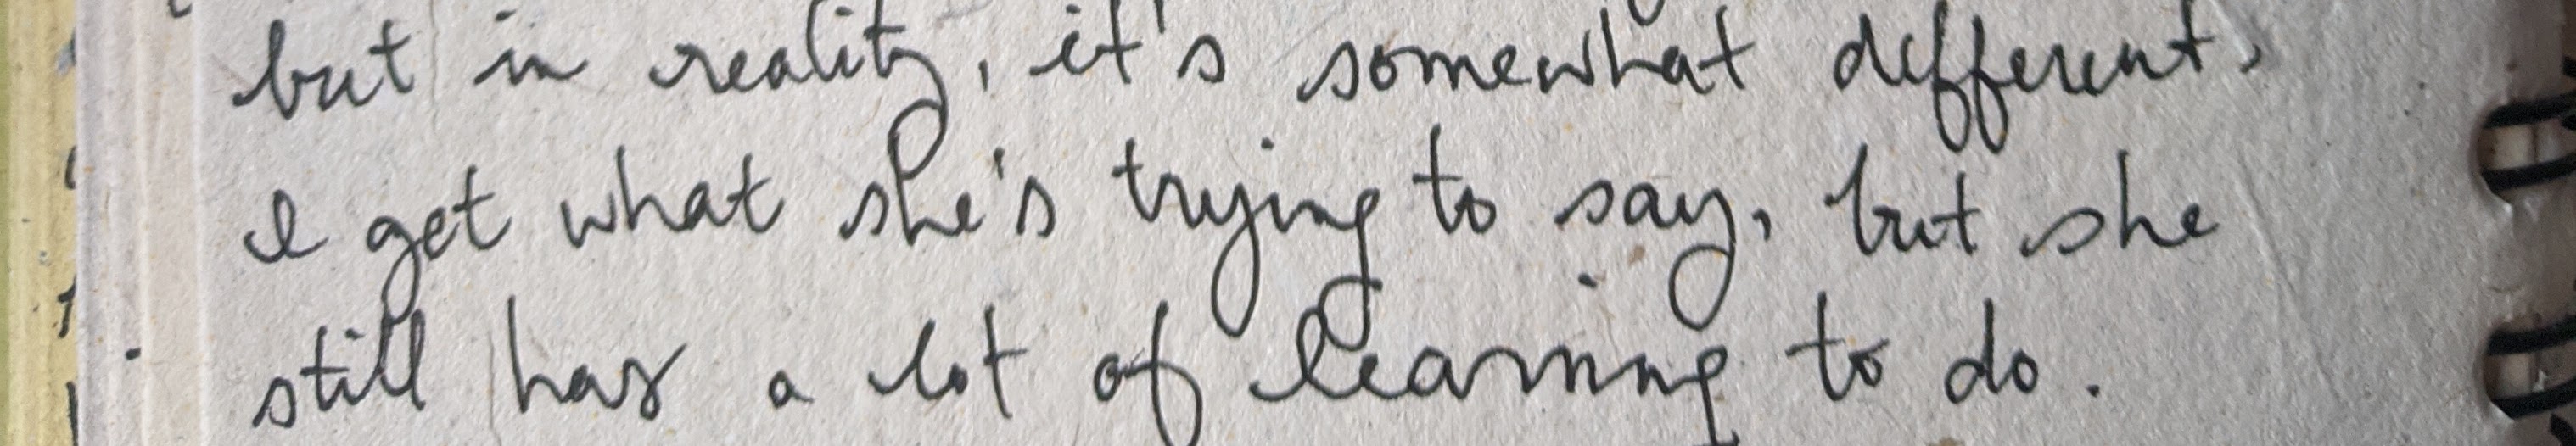 but in reality, it's somewhat different,
I get what she's trying to say, but she
still has a lot of learning to do.